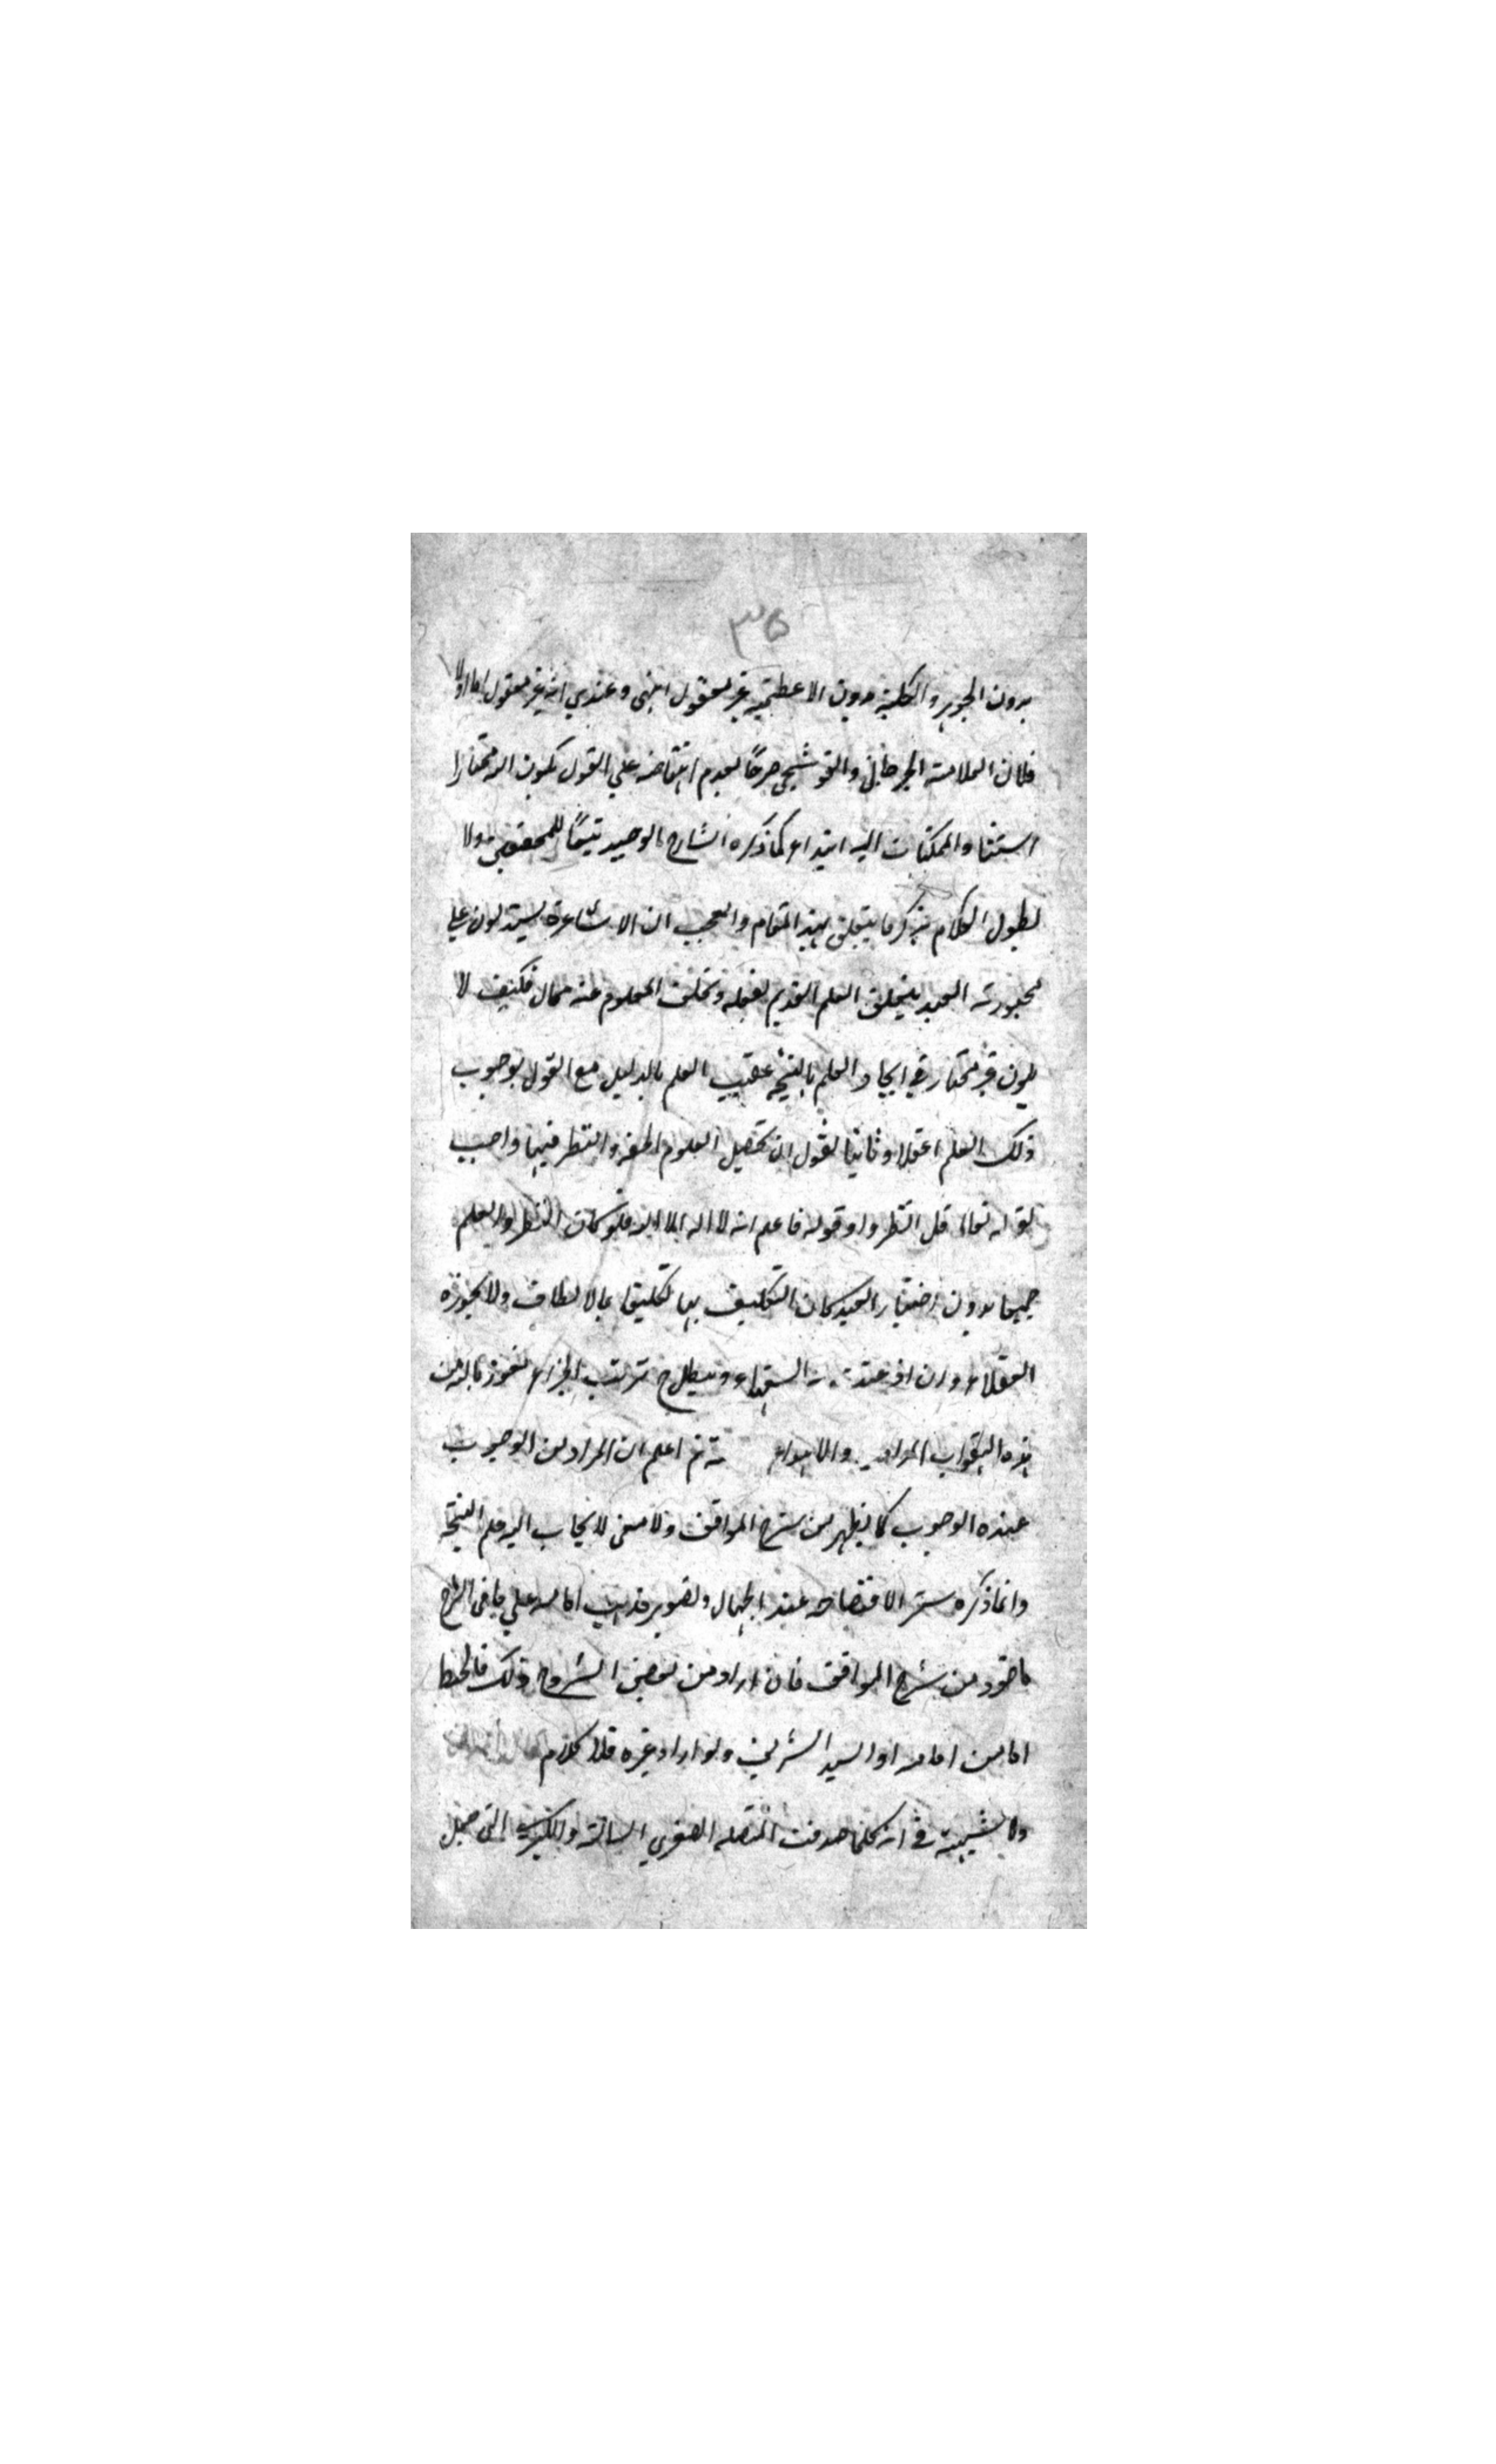 ۳۵
بدون الجوهر والكلية بدون الاعظمية غير معقول انتهى وعندي انه غير معقول اما اولا
فلان العلامة الجرجاني والقوشجي صرحا بعدم انتقاضه على القول بكون الله مختارا
استناد الممكنات اليه ابتداء كما ذكره الشارح الوحيد تبعًا للمحققين ولا
نطول الكلام بذكر ما يتعلق بهذا المقام والعجب ان الاشاعرة يستدلون على
مجبورية العبد بتعلق العلم القديم بفعله وتخلف المعلوم عنه محال فكيف لا
يكون غير مختار في ايجاد العلم بالنتيجة عقيب العلم بالدليل مع القول بوجوب
ذلك العلم عقلا وثانيا نقول ان تحصيل العلوم الحقة والنظر فيها واجب
لقوله تعالى قل انظروا وقوله فاعلم انه لا اله الا الله فلو كان النظر والعلم
جميعا بدون اختيار العبد كان التكليف بها تكليفا بما لا يطاق ولا يجوزه
العقلاء وان السفهاء ويبطل ح ترتب الجزاء نعوذ بالله من
هذه والاهواء ثم اعلم ان المراد من الوجوب
عنده الوجوب كما يظهر من شرح المواقف ولا معنى لايجاب الله علم النتيجة
وانما ذكره ستر الافتضاحه عند الجهال وتصوير مذهب امامه على ما في الشرح
ماخوذ من شرح المواقف فان اراد من بعض الشروح ذلك فالخبط
اما من امامه او السيد الشريف ولو اراد غيره فلا كلام
ولا شبهة في انه كلما صدقت المتصلة الصغرى السالبة والكبرى التي